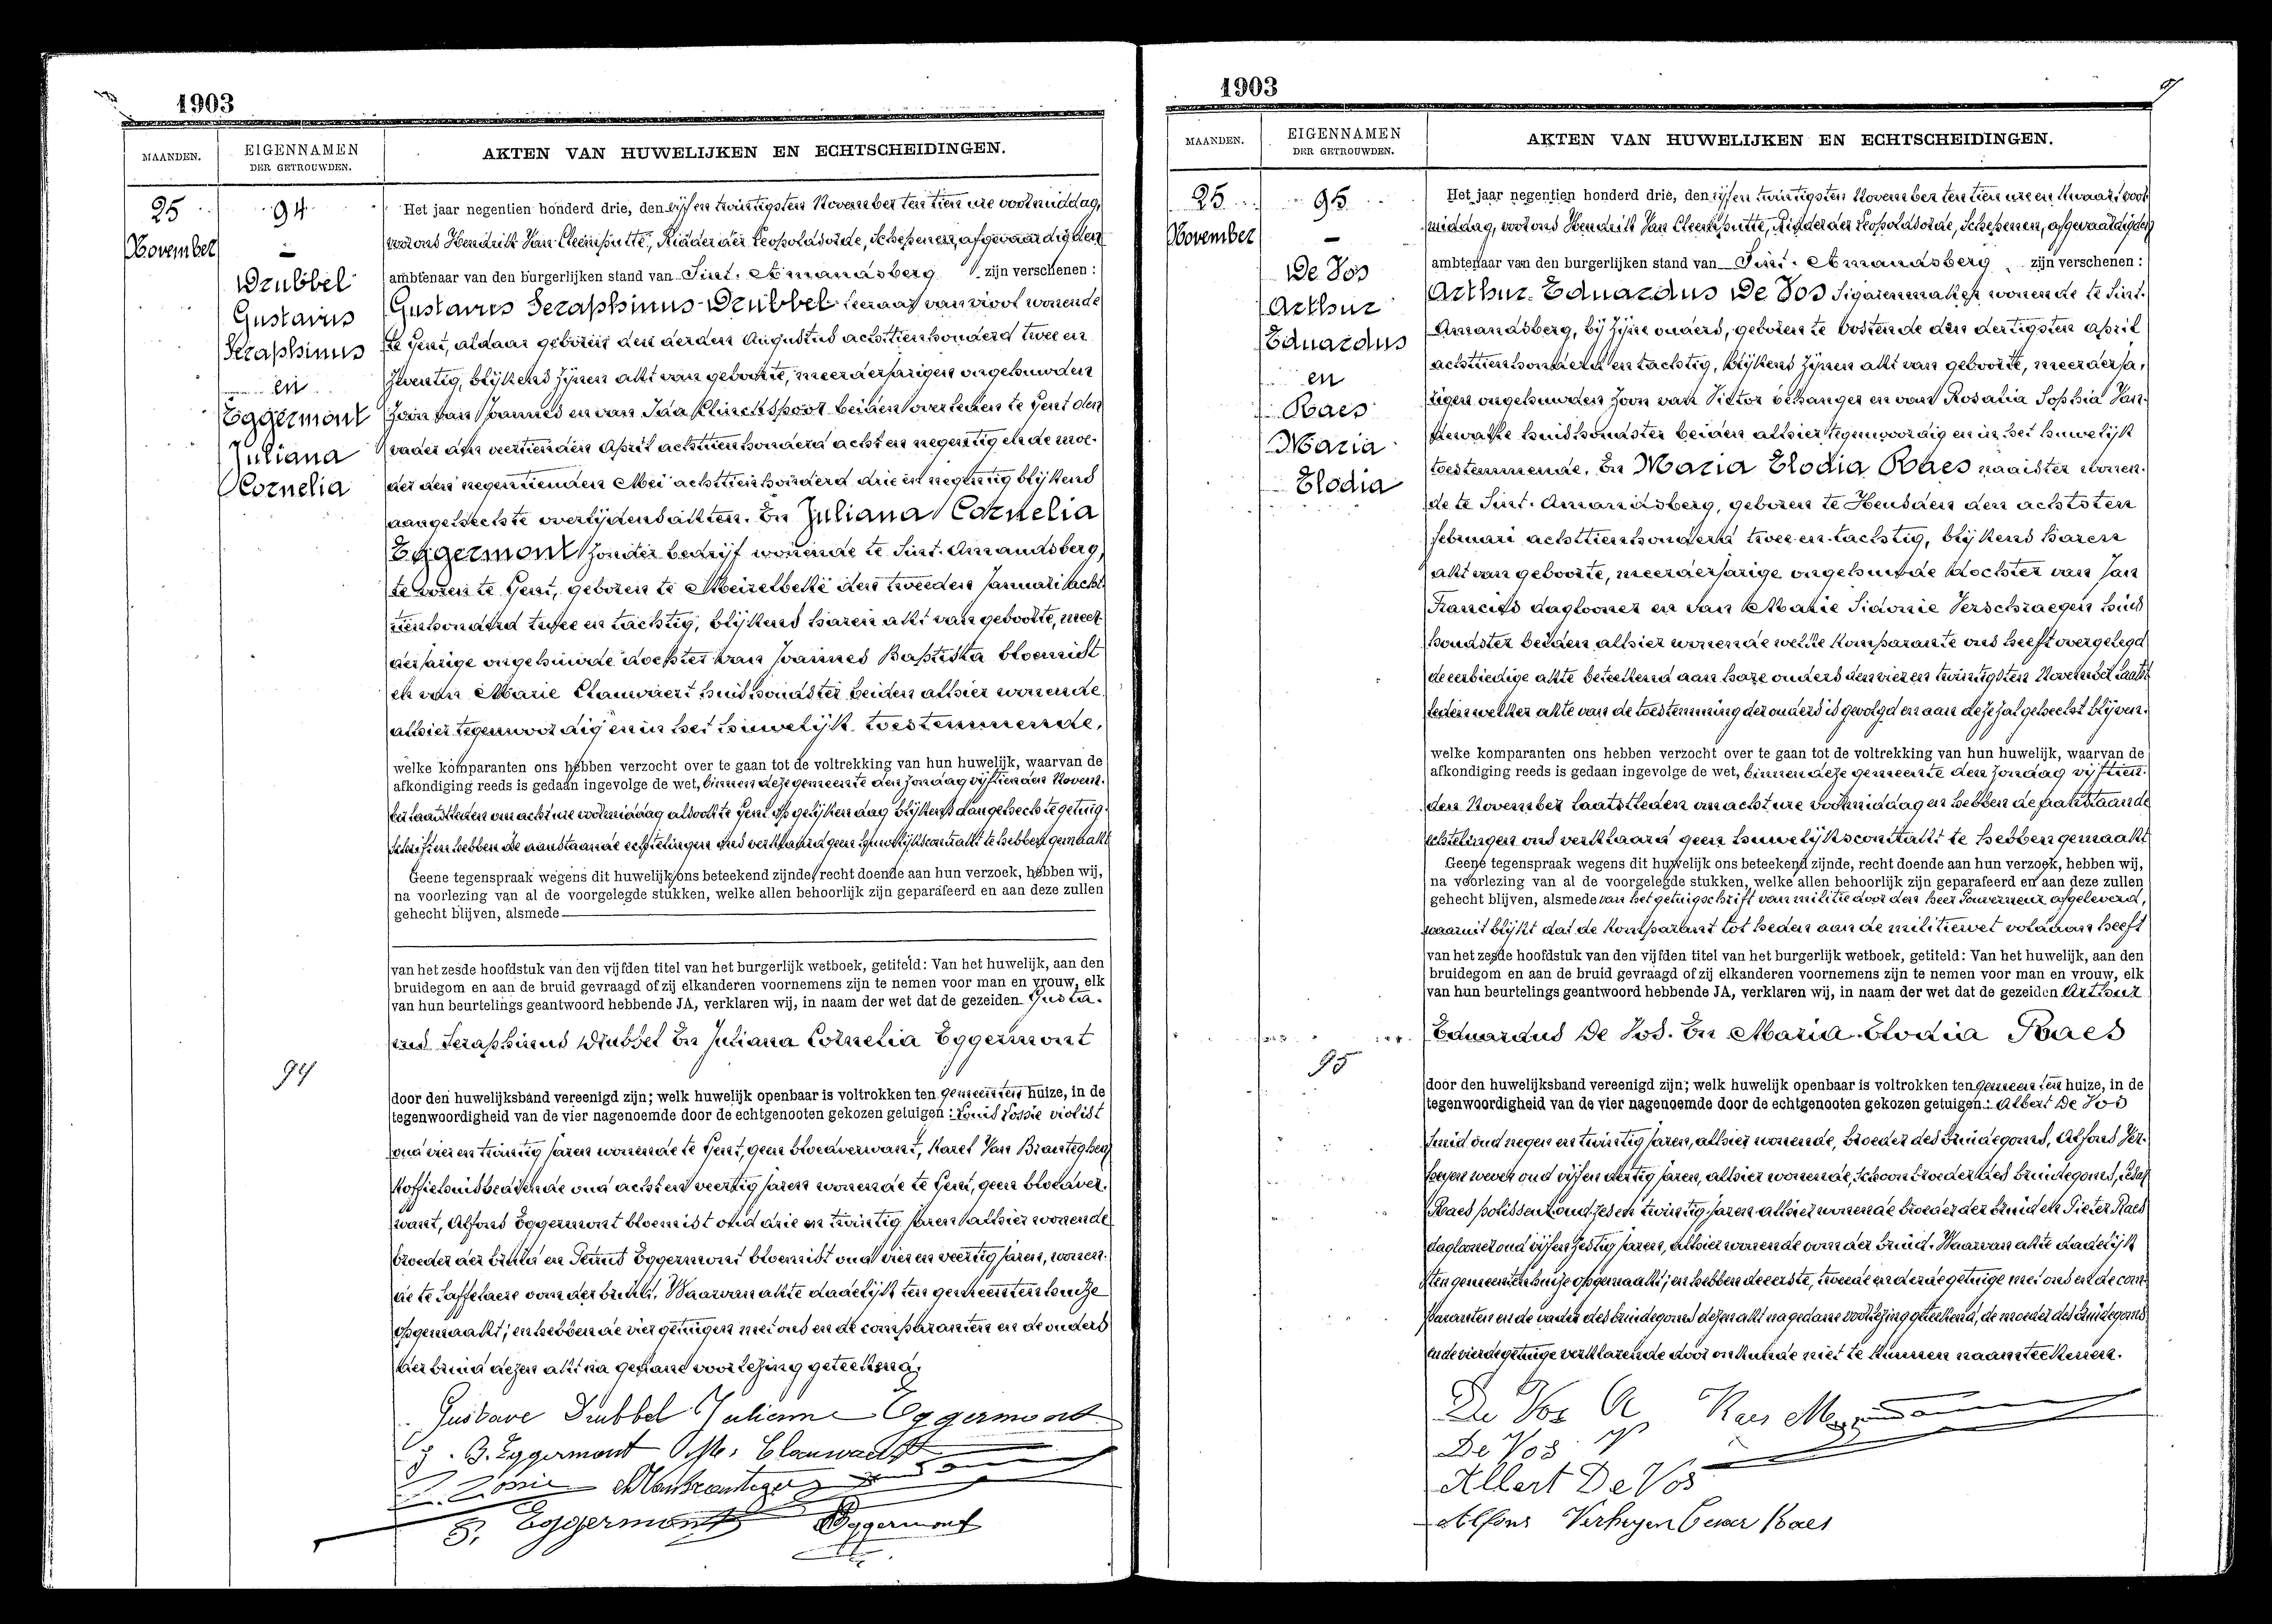 1903
MAANDEN.
EIGENNAMEN
DER GETROUWDEN.
AKTEN VAN HUWELIJKEN EN ECHTSCHEIDINGEN.
25
November
94
Drubbel
Gustavus
Seraphinus
en
Eggermont
Juliana
Cornelia
Het jaar negentien honderd drie, den vijf en twintigsten November ten tien ure voormiddag,
voor ons Hendrik Van Cleemputte, Ridder der Leopoldsorde, Schepenen, afgevaardigden
ambtenaar van den burgerlijken stand van Sint. Amandsberg zijn verschenen:
Gustavus Seraphinus Drubbel leeraar van viool wonende
te Gent, aldaar geboren den derden Augustus achttienhonderd twee en
zeventig, blijkens zijnen akt van geboorte, meerderjarigen ongehuwden
zoon van Joannes en van Ida Klinckspoor beiden overleden te Gent den
vader den veertienden April achttienhonderd acht en negentig en de moe-
der den negentienden Mei achttienhonderd drie en negentig blijkens
aangehechte overlijdensakten. En Juliana Cornelia
Eggermont zonder bedrijf wonende te Sint. Amandsberg,
te voren te Gent, geboren te Meirelbeke den tweeden Januari acht-
tienhonderd twee en tachtig, blijkens haren akt van geboorte, meer-
derjarige ongehuwde dochter van Joannes Baptista bloemist
en van Marie Clauwaert huishoudster beiden alhier wonende
alhier tegenwoordig en in het huwelijk toestemmende.
welke komparanten ons hebben verzocht over te gaan tot de voltrekking van hun huwelijk, waarvan de
afkondiging reeds is gedaan ingevolge de wet, binnen deze gemeente den zondag vijftienden Novem-
ber laatstleden om acht ure voormiddag alsook te Gent op gelijken dag blijkens aangehechte getuig-
schrift en hebben de aanstaande echtelingen ons verklaard geen huwelijkscontrakt te hebben gemaakt
Geene tegenspraak wegens dit huwelijk ons beteekend zijnde, recht doende aan hun verzoek, hebben wij,
na voorlezing van al de voorgelegde stukken, welke allen behoorlijk zijn geparafeerd en aan deze zullen
gehecht blijven, alsmede
van het zesde hoofdstuk van den vijfden titel van het burgerlijk wetboek, getiteld: Van het huwelijk, aan den
bruidegom en aan de bruid gevraagd of zij elkanderen voornemens zijn te nemen voor man en vrouw, elk
van hun beurtelings geantwoord hebbende JA, verklaren wij, in naam der wet dat de gezeiden Gusta-
vus Seraphinus Drubbel En Juliana Cornelia Eggermont
94
door den huwelijksband vereenigd zijn; welk huwelijk openbaar is voltrokken ten gemeenten huize, in de
tegenwoordigheid van de vier nagenoemde door de echtgenooten gekozen getuigen: Louis Lossie violist
oud vier en twintig jaren wonende te Gent, geen bloedverwant, Karel Van Branteghem
koffiehuisbedienende oud acht en veertig jaren wonende te Gent, geen bloedver-
want, Alfons Eggermont bloemist oud drie en twintig jaren alhier wonende
broeder der bruid en Petrus Eggermont bloemist oud vier en veertig jaren, wonen-
de te Laffelaere oom der bruid. Waarvan akte dadelijk ten gemeentenhuize
opgemaakt; en hebben de vier getuigen met ons en de comparanten en de ouders
der bruid dezen akt na gedane voorlezing geteekend.
Gustave Drubbel Julienne Eggermont
J. B. Eggermont M. Clauwaert
P. Eggermont A Eggermont
1903
MAANDEN.
EIGENNAMEN
DER GETROUWDEN.
AKTEN VAN HUWELIJKEN EN ECHTSCHEIDINGEN.
25
November
95
De Vos
Arthur
Eduardus
en
Raes
Maria
Elodia
Het jaar negentien honderd drie, den vijf en twintigsten November ten tien ure en kwaart voor-
middag, voor ons Hendrik Van Cleemputte, Ridder der Leopoldsorde, Schepenen, afgevaardigden
ambtenaar van den burgerlijken stand van Sint. Amandsberg zijn verschenen:
Arthur Eduardus De Vos sigarenmaker wonende te Sint.
Amandsberg, bij zijne ouders, geboren te Oostende den dertigsten april
achttienhonderd en tachtig, blijkens zijnen akt van geboorte, meerderja-
rigen ongehuwden zoon van Victor behanger en van Rosalia Sophia Van-
dewalle huishoudster beiden alhier tegenwoordig en in het huwelijk
toestemmende. En Maria Elodia Raes naaister wonen-
de te Sint. Amandsberg, geboren te Heusden den achtsten
februari achttienhonderd twee en tachtig, blijkens haren
akt van geboorte, meerderjarige ongehuwde dochter van Jan
Francies daglooner en van Marie Sidonie Verschraegen huis-
houdster beiden alhier wonende welke komparante ons heeft overgelegd
de eerbiedige akte beteekend aan hare ouders den vier en twintigsten November laatst-
leden welker akte van de toestemming der ouders is gevolgd en aan deze zal gehecht blijven.
welke komparanten ons hebben verzocht over te gaan tot de voltrekking van hun huwelijk, waarvan de
afkondiging reeds is gedaan ingevolge de wet, binnen deze gemeente den zondag vijftien-
den November laatstleden om acht ure voormiddag en hebben de aanstaande
echtelingen ons verklaard geen huwelijkscontrakt te hebben gemaakt
Geene tegenspraak wegens dit huwelijk ons beteekend zijnde, recht doende aan hun verzoek, hebben wij,
na voorlezing van al de voorgelegde stukken, welke allen behoorlijk zijn geparafeerd en aan deze zullen
gehecht blijven, alsmede van het getuigschrift van militie door den heer Gouverneur afgeleverd,
waaruit blijkt dat de komparant tot heden aan de militiewet voldaan heeft
van het zesde hoofdstuk van den vijfden titel van het burgerlijk wetboek, getiteld: Van het huwelijk, aan den
bruidegom en aan de bruid gevraagd of zij elkanderen voornemens zijn te nemen voor man en vrouw, elk
van hun beurtelings geantwoord hebbende JA, verklaren wij, in naam der wet dat de gezeiden Arthur
Eduardus De Vos. En Maria Elodia Raes
95
door den huwelijksband vereenigd zijn; welk huwelijk openbaar is voltrokken ten gemeenten huize, in de
tegenwoordigheid van de vier nagenoemde door de echtgenooten gekozen getuigen: Albert De Vos
smid oud negen en twintig jaren, alhier wonende, broeder des bruidegoms, Alfons Ver-
heyen wever oud vijf en dertig jaren, alhier wonende, schoonbroeder des bruidegoms, Cesar
Raes polisseur oud zes en twintig jaren alhier wonende broeder der bruid en Pieter Raes
daglooner oud vijf en zestig jaren, alhier wonende oom der bruid. Waarvan akte dadelijk
ten gemeentenhuize opgemaakt; en hebben de eerste, tweede en derde getuige met ons en de com-
paranten en de vader des bruidegoms dezen akt na gedane voorlezing geteekend, de moeder des bruidegoms
en de vierde getuige verklarende door onkunde niet te kunnen naamteekenen.
De Vos A Raes M
De Vos V
Albert De Vos
Alfons Verheyen Cesar Raes